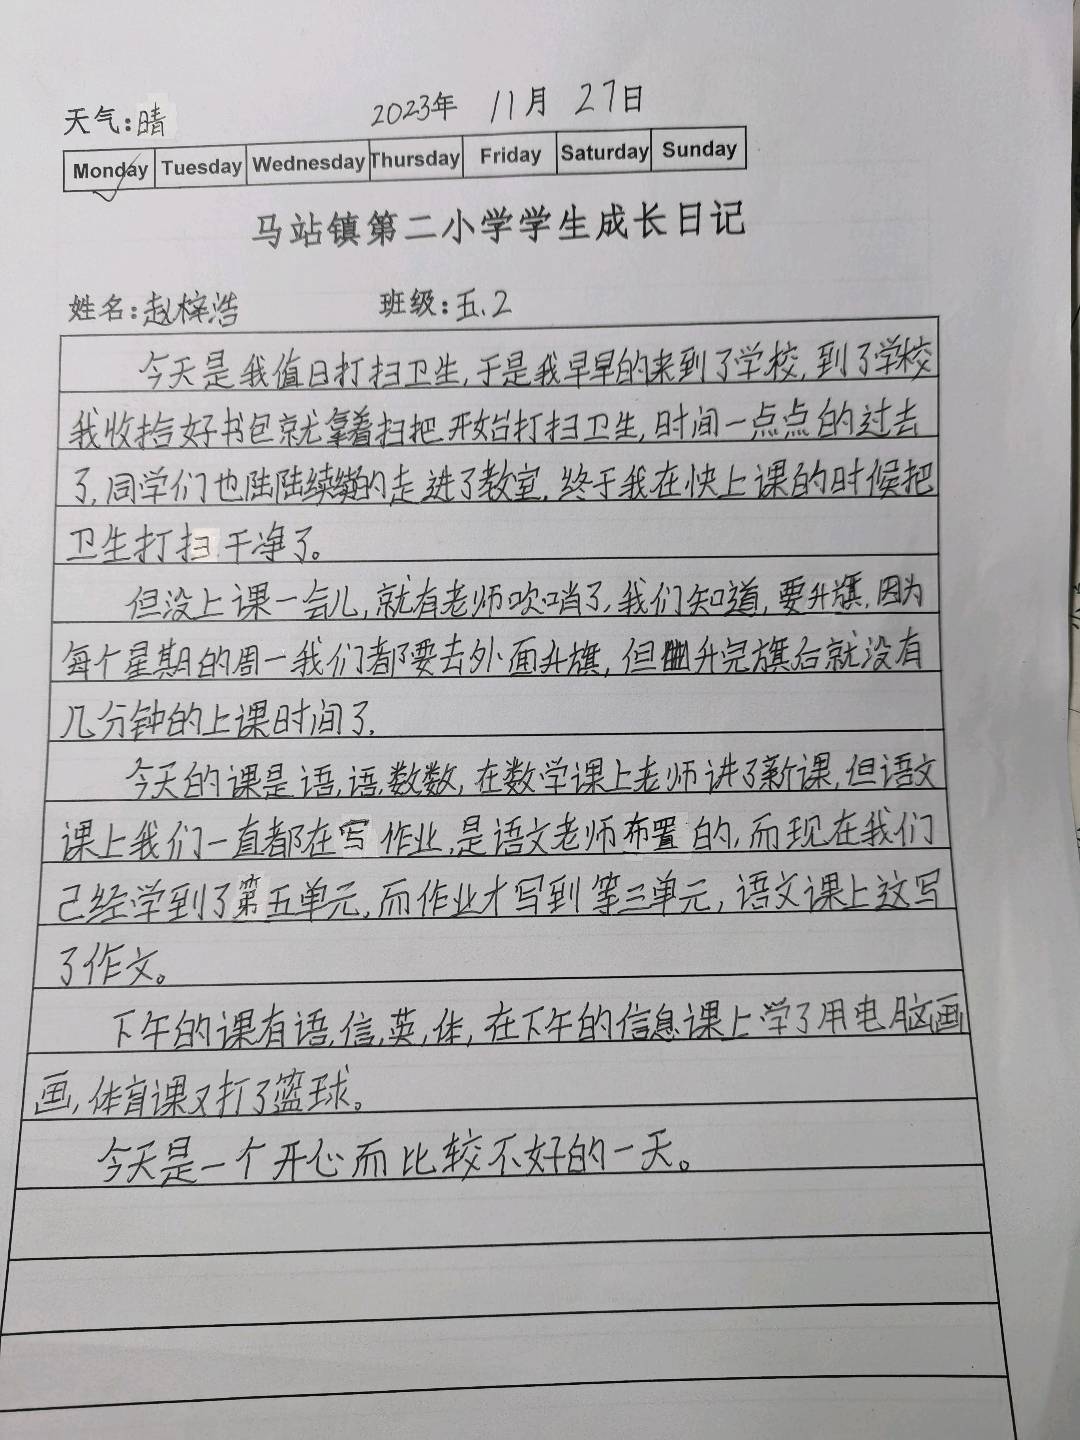 天气:晴 2023年 11月 27日
Monday Tuesday Wednesday Thursday Friday Saturday Sunday
马站镇第二小学学生成长日记
姓名:赵梓浩 班级:五.2
今天是我值日打扫卫生,于是我早早的来到了学校,到了学校
我收拾好书包就拿着扫把开始打扫卫生,时间一点点的过去
了,同学们也陆陆续续的走进了教室,终于我在快上课的时候把
卫生打扫干净了。
但没上课一会儿,就有老师吹哨了,我们知道,要升旗,因为
每个星期的周一我们都要去外面升旗,但升完旗后就没有
几分钟的上课时间了.
今天的课是语,语,数数,在数学课上老师讲了新课,但语文
课上我们一直都在写作业,是语文老师布置的,而现在我们
己经学到了第五单元,而作业才写到第三单元,语文课上这写
了作文。
下午的课有语,信,英,体,在下午的信息课上学了用电脑画
画,体育课又打了篮球。
今天是一个开心而比较不好的一天。